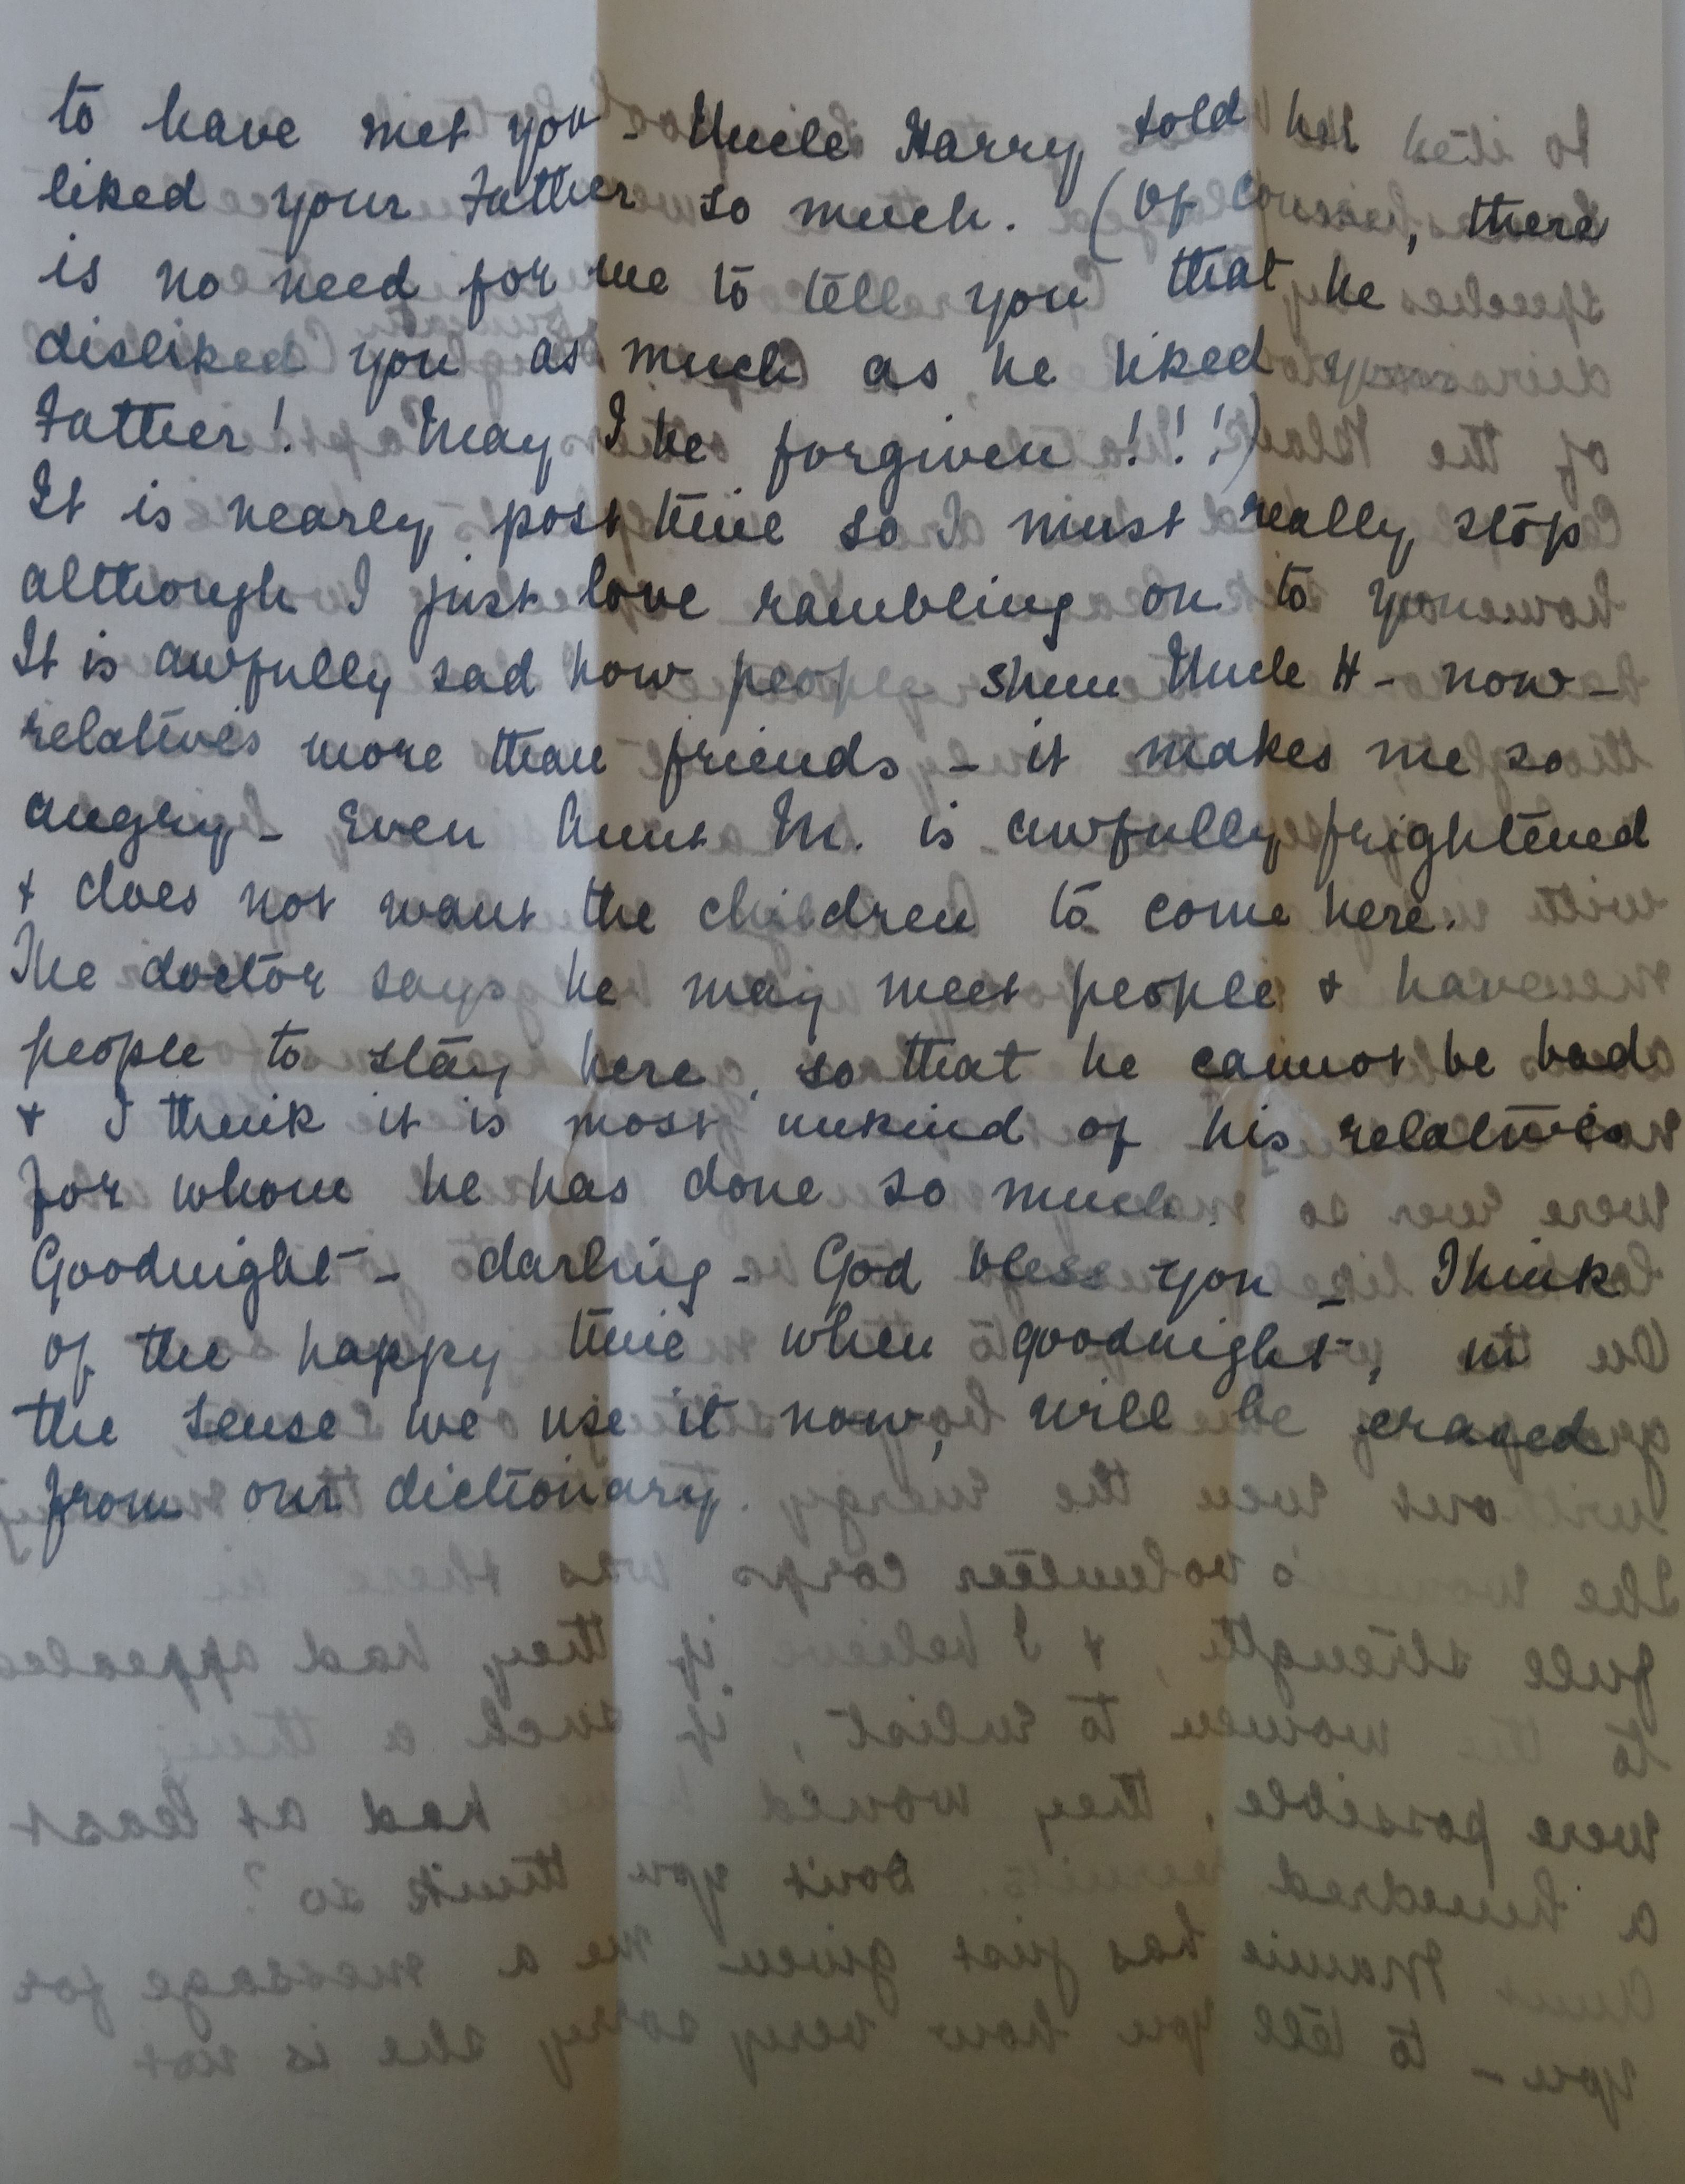 to have met you - Uncle Harry told her he
liked your Father so much. (Of course, there
is no need for me to tell you that he
disliked you as much as he liked your
Father! May I be forgiven!!!)
It is nearly post time so I must really stop
although I just love rambling on to you.
It is awfully sad how people shun Uncle H - now -
relatives more than friends - it makes me so
angry - Even Aunt M. is awfully frightened
& does not want the children to come here.
The doctor says he may meet people & have
people to stay here, so that he cannot be bad
& I think it is most unkind of his relatives
for whom he has done so much.
Goodnight - darling - God bless you - Think
of the happy time when goodnight, in
the sense we use it now, will be erased
from our dictionary.